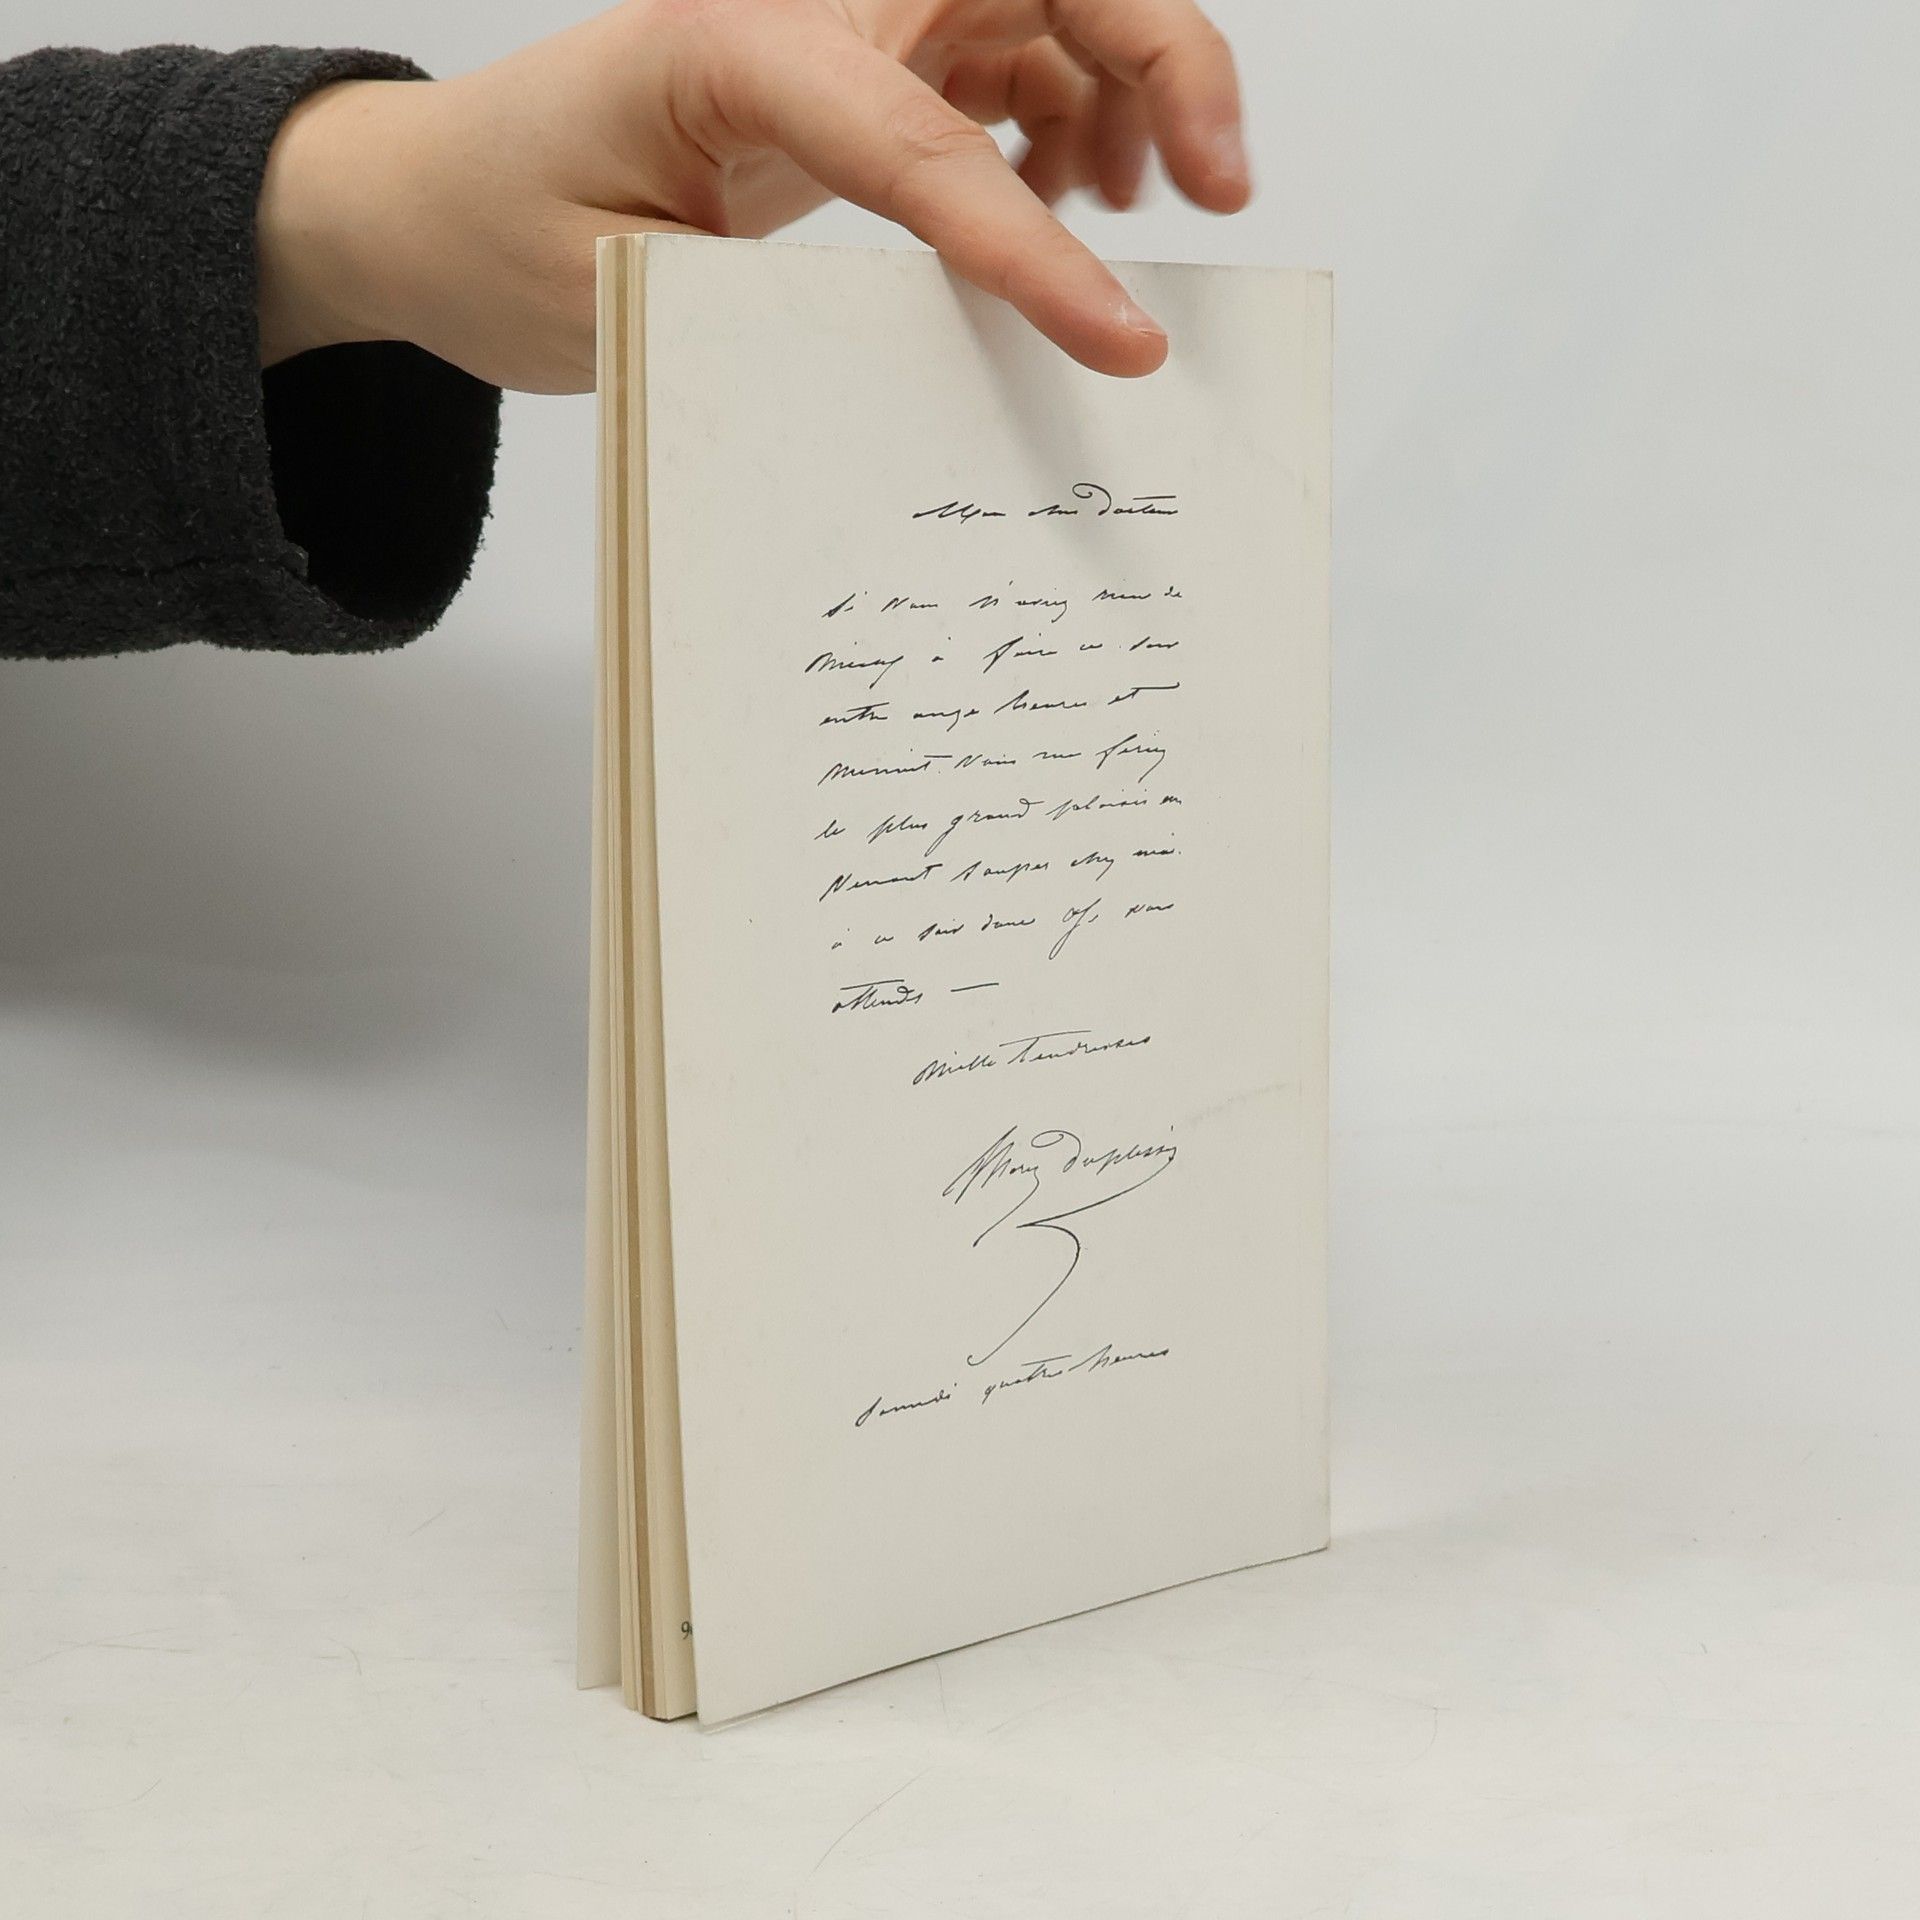 Mon cher Docteur
Si vous n'aviez rien de
Mieux à faire ce soir
entre onze heures et
Minuit. Vous me feriez
le plus grand plaisir en
Venant souper chez moi.
à ce soir donc je vous
attends —
Mille Tendresses
Marie Duplessis
Samedi quatre heures
9